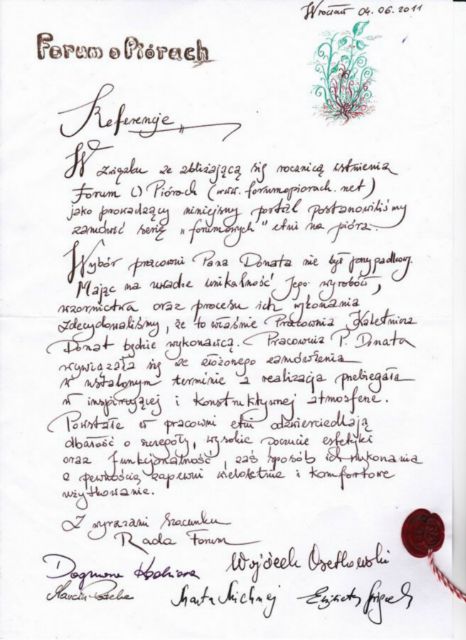 Wrocław 04.06.2011
Forum o Piórach
Referencje
W związku ze zbliżającą się rocznicą istnienia
Forum O Piórach (www.forumopiorach.net)
jako prowadzący niniejszy portal postanowiliśmy
zamówić serię „forumowych” etui na pióra.
Wybór pracowni Pana Donata nie był przypadkowy.
Mając na uwadze unikalność Jego wyrobów,
wzornictwa oraz procesu ich wykonania
zdecydowaliśmy, że to właśnie Pracownia Kaletnicza
Donat będzie wykonawcą. Pracownia P. Donata
wywiązała się ze złożonego zamówienia
w ustalonym terminie a realizacja przebiegała
w inspirującej i konstruktywnej atmosferze.
Powstałe w pracowni etui odzwierciedlają
dbałość o szczegóły, wysokie poczucie estetyki
oraz funkcjonalność, zaś sposób ich wykonania
z pewnością zapewni wieloletnie i komfortowe
użytkowanie.
Z wyrazami szacunku
Rada Forum
Wojciech
Marcin
Marta